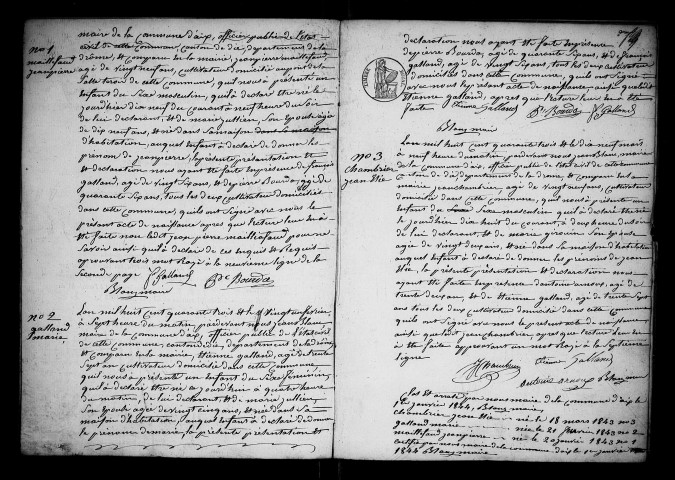 no 1
mailléfaud
jeanpierre
maire de la commune d'aix, officier public de l'état
civil de cette Commune canton de die, département de la
drôme, est comparu en la mairie, jean pierre maillefaud,
agé de vingt neuf ans, cultivateur domicilié
dans cette Commune, qui nous a présenté un
enfant du Sexe masculin, qu'il a déclaré être né le
jourd'hier dix neuf du courant à neuf heure du Soir
de lui déclarant, et de marie jullien, Son épouse agée
de dix neuf ans, et née dans Sa maison
d'habitation, auquel enfant il a déclaré donner les
prénoms de jean pierre, les présente présentation et
et déclaration nous ayant été faite en présence de françois
galland, agé de vingt Six ans, et de pierre Bourda, agé de
quarante Six ans, tous les deux cultivateurs domiciliés
dans cette Commune, qui ont Signé avec nous le
présent acte de naissance après que lecture leur en a
été faite non ledit jean pierre maillefaud pour ne
Savoir ainsi qu'il a déclaré de ces requis et
approuvant mot rayé à la neuvieme ligne de la
Seconde page f. Galland
Pre Bourda
Blanc maire
no 2
galland
marie
L'an mil huit cent quarante trois et le vingt un février
à Sept heure du matin, pardevant nous jean Blanc
maire de la commune d'aix, officier public de l'état civil
de cette commune, canton de die, département de la drôme,
est comparu en la mairie, étienne galland, agé de trente
Sept ans cultivateur domicilié dans cette commune,
qui nous a présenté un enfant du Sexe féminin,
qu'il a déclaré être né au jourd'hui à quatre heure
du matin, de lui déclarant, et de marie jullien,
Son épouse agée de vingt cinq ans, et née dans Sa
maison d'habitation, auquel enfant il a déclaré donner
le prénom de marie, la présente présentation et
déclaration nous ayant été faite en présence
de pierre Bourda, agé de quarante Six ans, et de françois
galland, agé de vingt Six ans, tous les deux cultivateurs
domiciliés dans cette Commune, qui ont Signé
avec nous le présent acte de naissance ainsi que ledit
Etienne galland, après que lecture leur en a été
faite Etienne Galland Pre Bourda f. Galland
Blanc maire
no 3
Chambrier
jean Elie
L'an mil huit cent quarante trois et le dix neuf mars
à neuf heure du matin, pardevant nous jean Blanc, maire
de la Commune d'aix, officier public de l'état civil de cette commune
canton de die, département de la drôme, est comparu en la
mairie jean chambrier, agé de vingt neuf ans, cultivateur
domicilié dans cette Commune, qui nous a présenté un
enfant du Sexe masculin, qu'il a déclaré être né
le jourd'hier dix huit du courant à deux heure du soir
de lui déclarant, et de marie girouin, Son épouse
agée de vingt deux ans, et née dans Sa maison d'habitation
auquel enfant il a déclaré donner les prénoms de jean
Elie, la présente présentation et déclaration nous
ayant été faite en présence d'antoine arnoux, agé de
trente deux ans, et d'étienne galland, agé de trente Sept
ans tous les deux cultivateurs domiciliés dans cette commune,
qui ont Signé avec nous le présent acte de naissance
ainsi que jean chambrier, après que lecture leur en
a été faite approuvant un mot rayé à la Septieme
ligne
Etienne Galland
antoine arnoux Blanc maire
Clos et arrêté par nous maire de la Commune d'aix le
1er janvier 1844, Blanc maire
chambrier jean Elie né le 18 mars 1843 no 3
galland marie née le 21 février 1843 no 2
maillefaud jean pierre né le 20 janvier 1843 no 1
Certifié par nous maire de la commune d'aix le 1er janvier
1844 Blanc maire